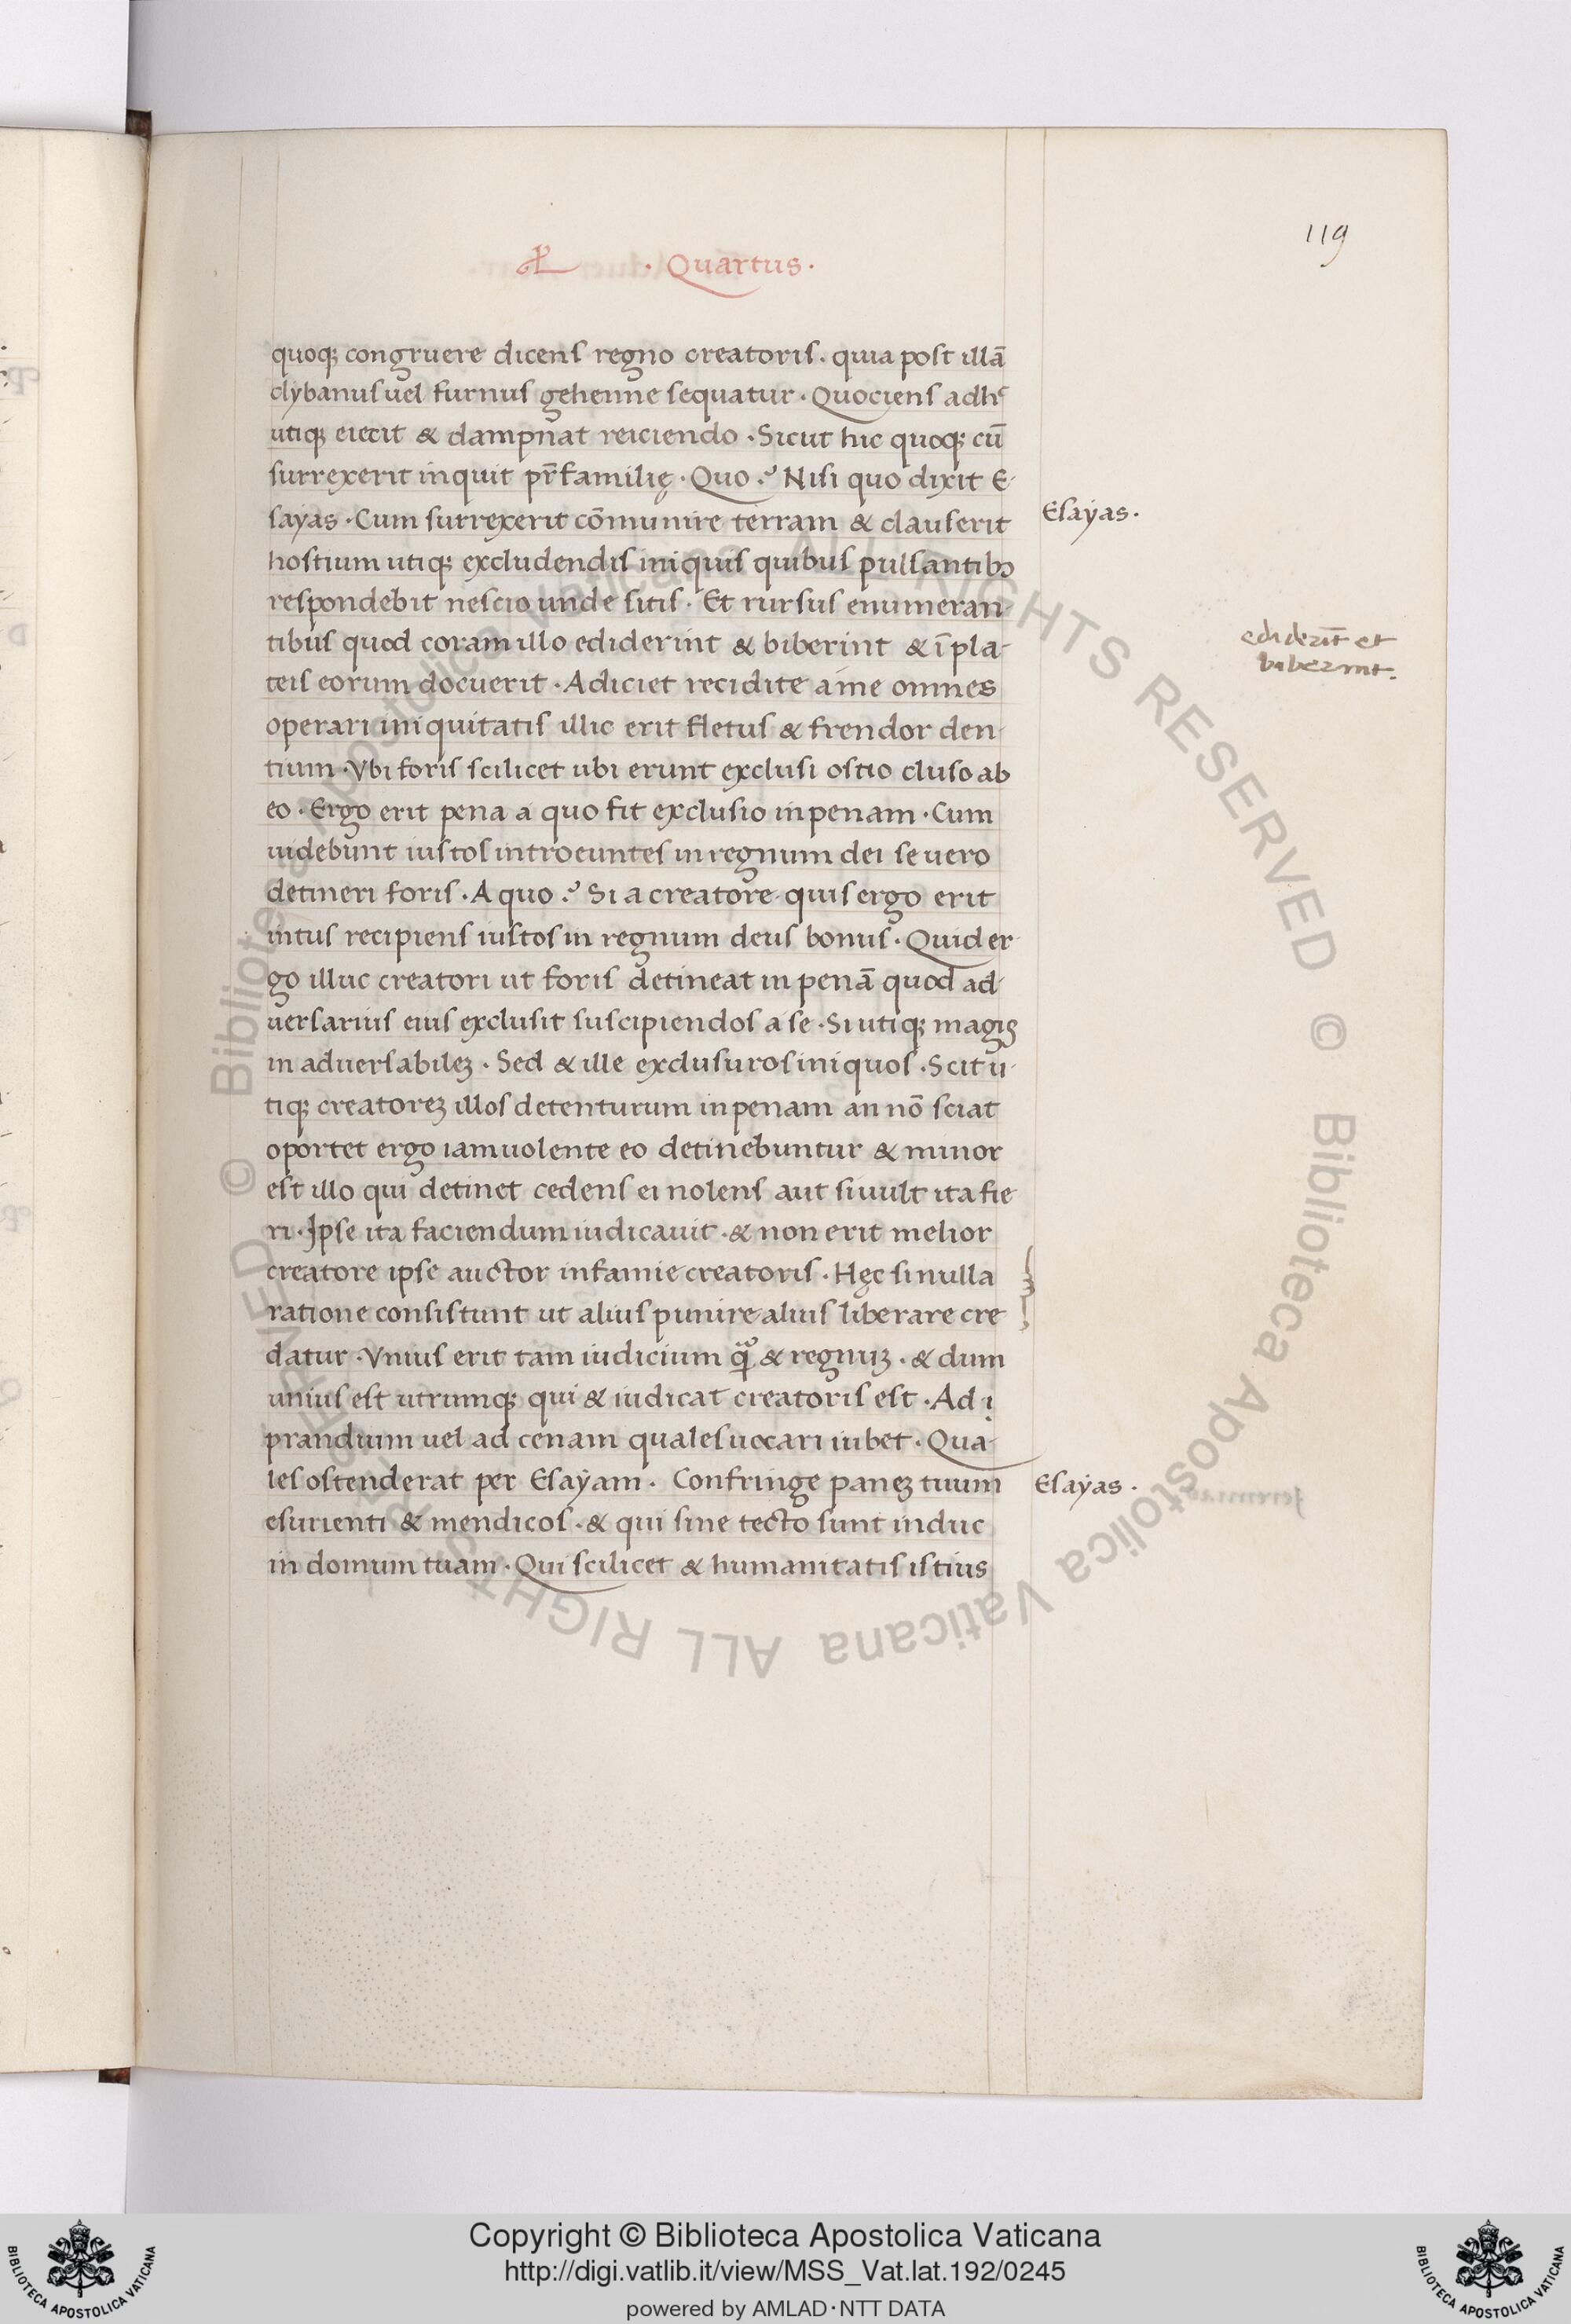 119
· Quartus ·
quoq; congruere dicens regno creatoris . quia post illā
clybanus uel furnus gehenne sequatur . Quociens adhᶜ
utiq; eiecit & dampnat reiciendo . Sicut hic quoq; cū
surrexerit inquit pr̄familię . Quo ? Nisi quo dixit E-
sayas . Cum surrexerit cōmunire terram & clauserit
Esayas .
hostium utiq; excludendis iniquis quibus pulsantibɔ
respondebit nescio unde sitis . Et rursus enumeran-
tibus quod coram illo ediderint & biberint & ī pla-
ediderīt et
biberint .
teis eorum docuerit . Adiciet recidite a me omnes
operari iniquitatis illic erit fletus & frendor den-
tium . Vbi foris scilicet ubi erunt exclusi ostio cluso ab
eo . Ergo erit pena a quo fit exclusio in penam . Cum
uidebunt iustos introeuntes in regnum dei se uero
detineri foris . A quo ? Si a creatore quis ergo erit
intus recipiens iustos in regnum deus bonus . Quid er-
go illuc creatori ut foris detineat in penā quod ad-
uersarius eius exclusit suscipiendos a se . Si utiq; magis
in aduersabilem . Sed & ille exclusuros iniquos . Scit u-
tiq; creatorem illos detenturum in penam an nō sciat
oportet ergo iam uolente eo detinebuntur & minor
est illo qui detinet cedens ei nolens aut si uult ita fie
ri . Ipse ita faciendum iudicauit . & non erit melior
creatore ipse auctor infamie creatoris . Hęc si nulla
ratione consistunt ut alius punire alius liberare cre
datur . Vnius erit tam iudicium q̃ & regnum . & dum
unius est utrumq; qui & iudicat creatoris est . Ad i
prandium uel ad cenam quales uocari iubet . Qua-
les ostenderat per Esayam . Confringe panem tuum
Esayas .
esurienti & mendicos . & qui sine tecto sunt induc
in domum tuam . Qui scilicet & humanitatis istius
© Biblioteca Apostolica Vaticana ALL RIGHTS RESERVED © Biblioteca Apostolica Vaticana ALL RIGHTS RESERVED
Copyright © Biblioteca Apostolica Vaticana
http://digi.vatlib.it/view/MSS_Vat.lat.192/0245
powered by AMLAD·NTT DATA
BIBLIOTECA APOSTOLICA VATICANA
BIBLIOTECA APOSTOLICA VATICANA